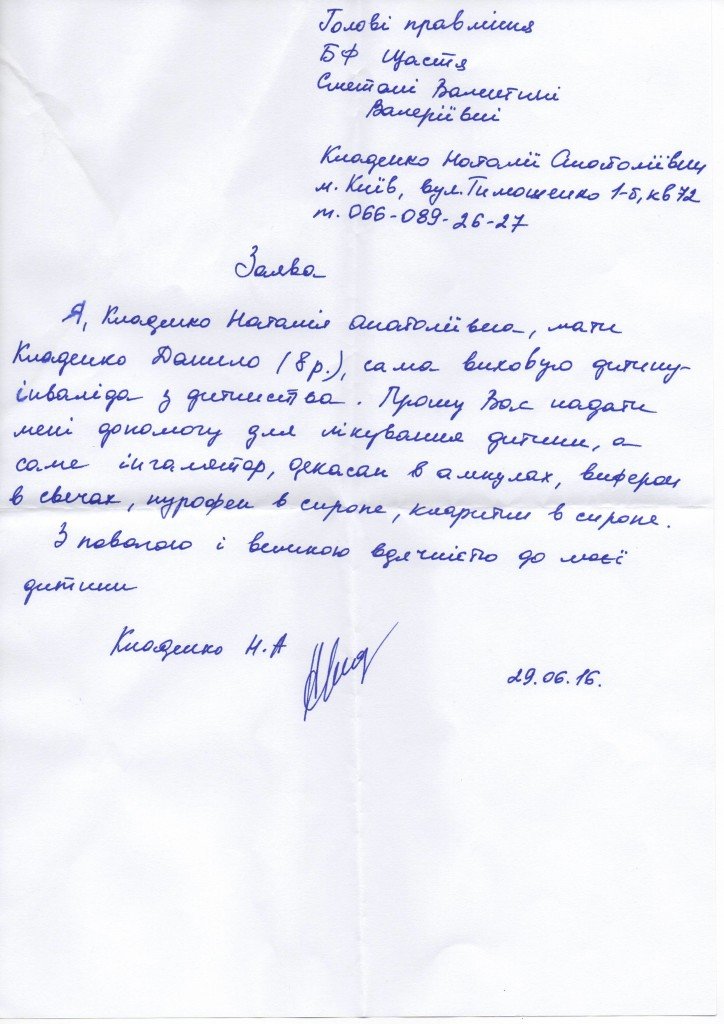 Голові правління
БФ Щастя
Сметані Валентині
Валеріївні
Кладенко Наталії Анатоліївни
м. Київ, вул. Тимошенко 1-б, кв 72
т. 066-089-26-27
Заява
Я, Кладенко Наталія Анатоліївна, мати
Кладенко Данило (8 р.), сама виховую дитину-
інваліда з дитинства. Прошу Вас надати
мені допомогу для лікування дитини, а
саме інгалятор, декасан в ампулах, виферон
в свечах, нурофен в сиропе, кларитин в сиропе.
З повагою і великою вдячністю до моєї
дитини
Кладенко Н.А
29.06.16.